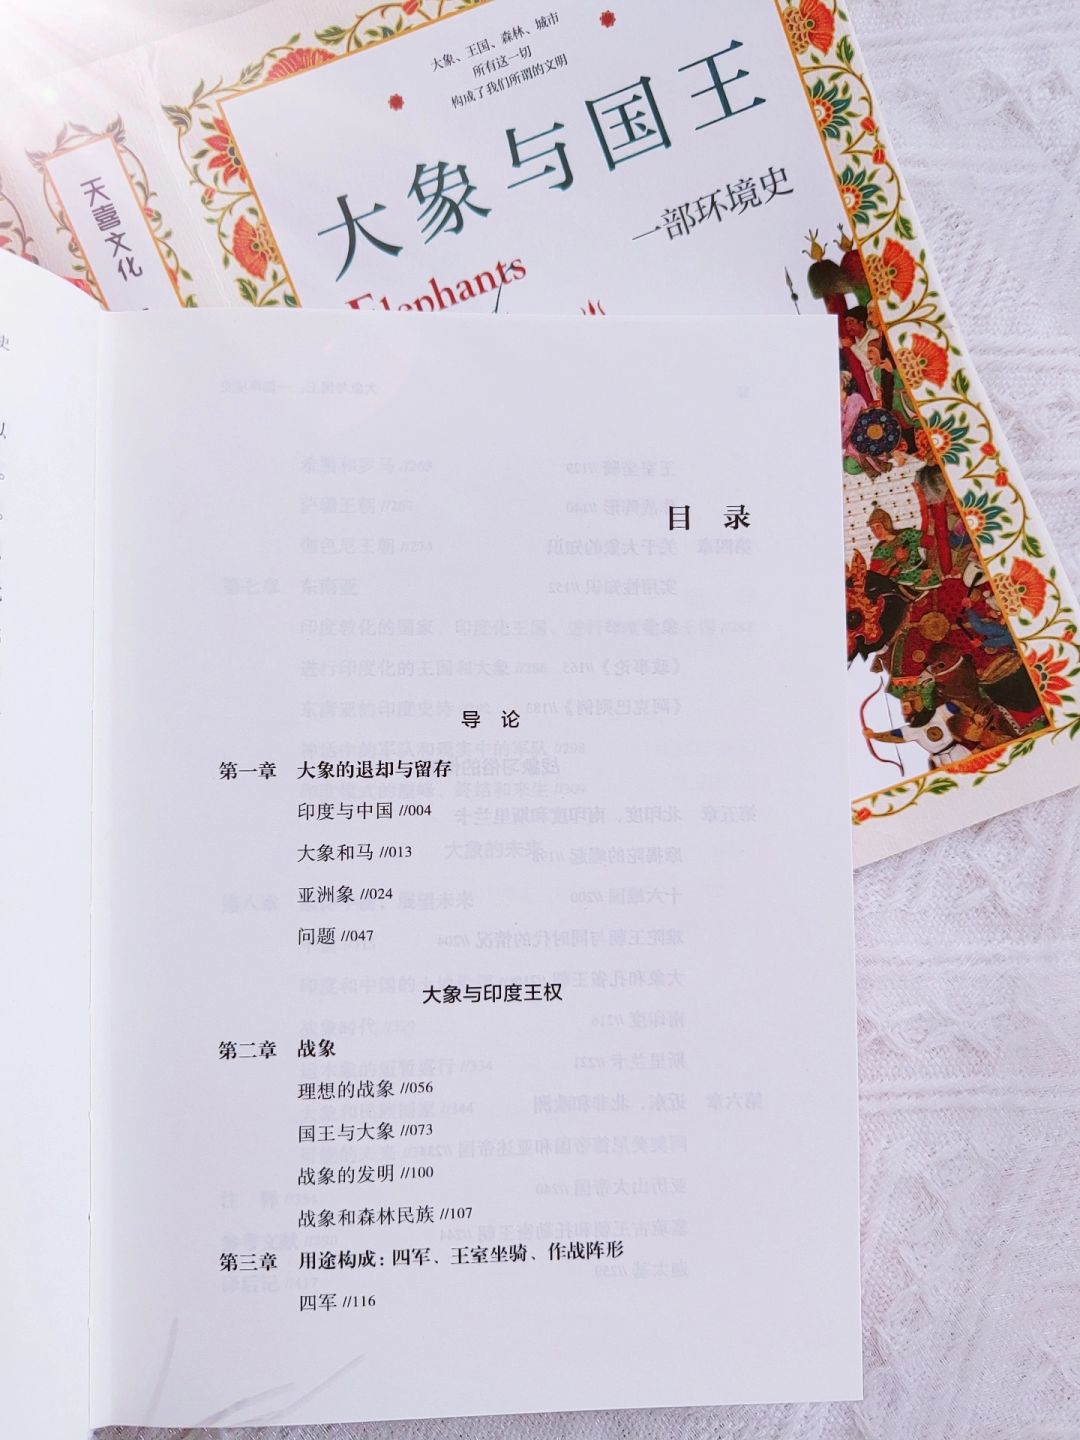 大象、王国、森林、城市
所有这一切
构成了我们所谓的文明
大象与国王
一部环境史
Elephants
天喜文化
目 录
导 论
第一章 大象的退却与留存
印度与中国 //004
大象和马 //013
亚洲象 //024
问题 //047
大象与印度王权
第二章 战象
理想的战象 //056
国王与大象 //073
战象的发明 //100
战象和森林民族 //107
第三章 用途构成：四军、王室坐骑、作战阵形
四军 //116